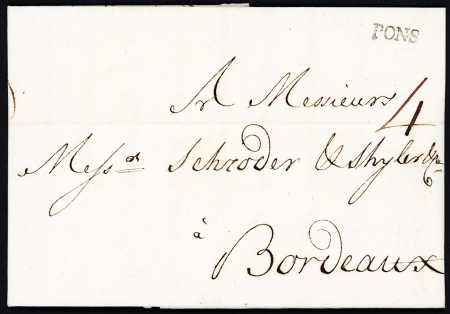 PONS
A Messieurs
4
Mess.rs Schroder & Shyler & Ce
à
Bordeaux